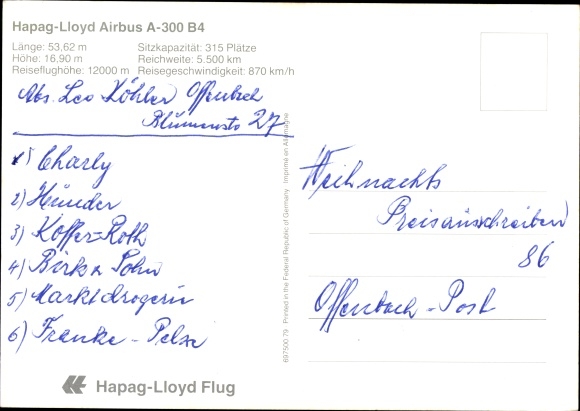 Hapag-Lloyd Airbus A-300 B4
Länge: 53,62 m Sitzkapazität: 315 Plätze
Höhe: 16,90 m Reichweite: 5.500 km
Reiseflughöhe: 12000 m Reisegeschwindigkeit: 870 km/h
Abs. Leo Köhler Offenbach
Blumenstr 27
1) Charly
2) Hünder
3) Koffer=Roth
4) Birk & Sohn
5) Marktdrogerie
6) Franke - Pelze
Hapag-Lloyd Flug
697500/79 Printed in the Federal Republic of Germany Imprimé en Allemagne
Weihnachts
Preisausschreiben
86
Offenbach - Post